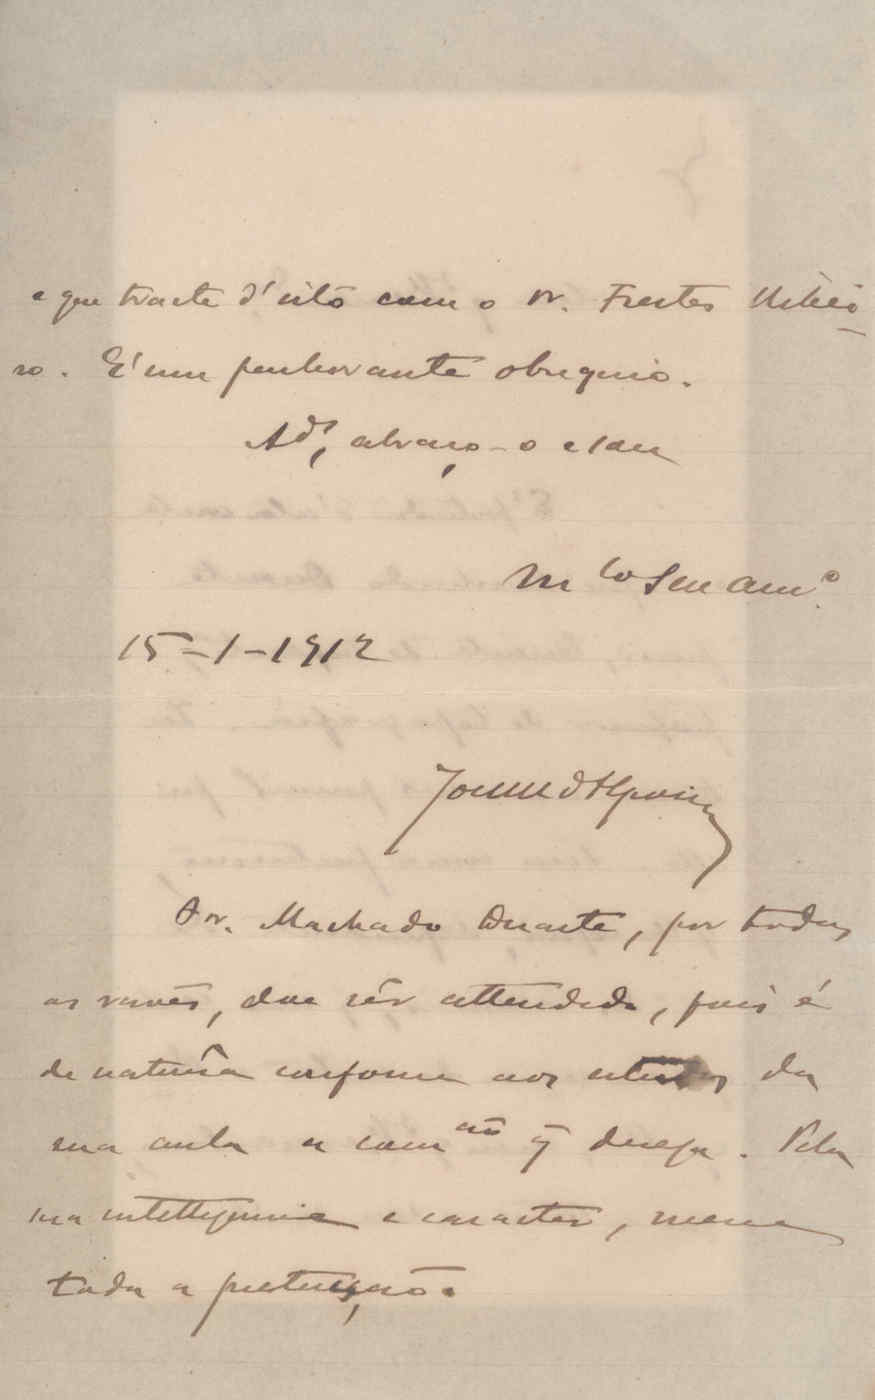 e que tracte d'isto com o Dr. Freitas Ribei-
ro. É um penhorante obsequio.
Ads, abraço-o e sou
Mto Seu amo.
15-1-1912
Dr. Machado Duarte, por todas
as razões, deve sêr attendido, pois é
de naturêsa conforme aos estudos da
sua aula a comão q̃ deseja. Pela
sua intelligencia e caracter, merece
toda a protecção.